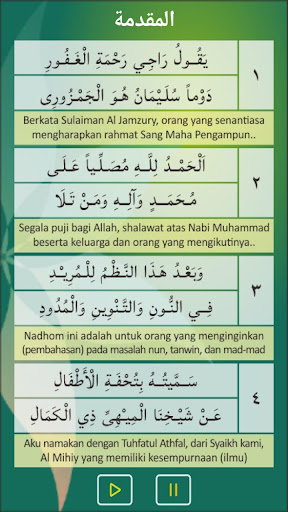 المقدمة
يَقُـولُ رَاجِي رَحْمَةِ الْغَفُـورِ
١
دَوْمـاً سُلَيْمَـانُ هُوَ الْجَمْزُورِى
Berkata Sulaiman Al Jamzury, orang yang senantiasa
mengharapkan rahmat Sang Maha Pengampun..
اَلْحَمْدُ لِلّـهِ مُصَلِّيـاً عَلَـى
٢
مُحَمَـدٍ وَآلِـهِ وَمَنْ تَـلَا
Segala puji bagi Allah, shalawat atas Nabi Muhammad
beserta keluarga dan orang yang mengikutinya..
وَبَعْدُ هَـذَا النَّظْـمُ لِلْمُرِيْـدِ
٣
فِـي النُّـونِ وَالتَّنْوِيـنِ وَالْمُدُودِ
Nadhom ini adalah untuk orang yang menginginkan
(pembahasan) pada masalah nun, tanwin, dan mad-mad
سَـمَّيْتُـهُ بِتُحْفَـةِ الْأَطْفَالِ
٤
عَنْ شَيْخِنَـا الْمِيْهِىِّ ذِي الْكَمَالِ
Aku namakan dengan Tuhfatul Athfal, dari Syaikh kami,
Al Mihiy yang memiliki kesempurnaan (ilmu)